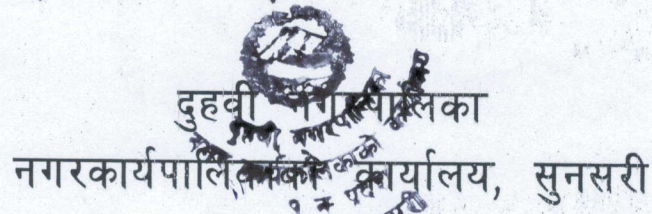 दुहवी नगरपालिका
नगरकार्यपालिकाको कार्यालय, सुनसरी